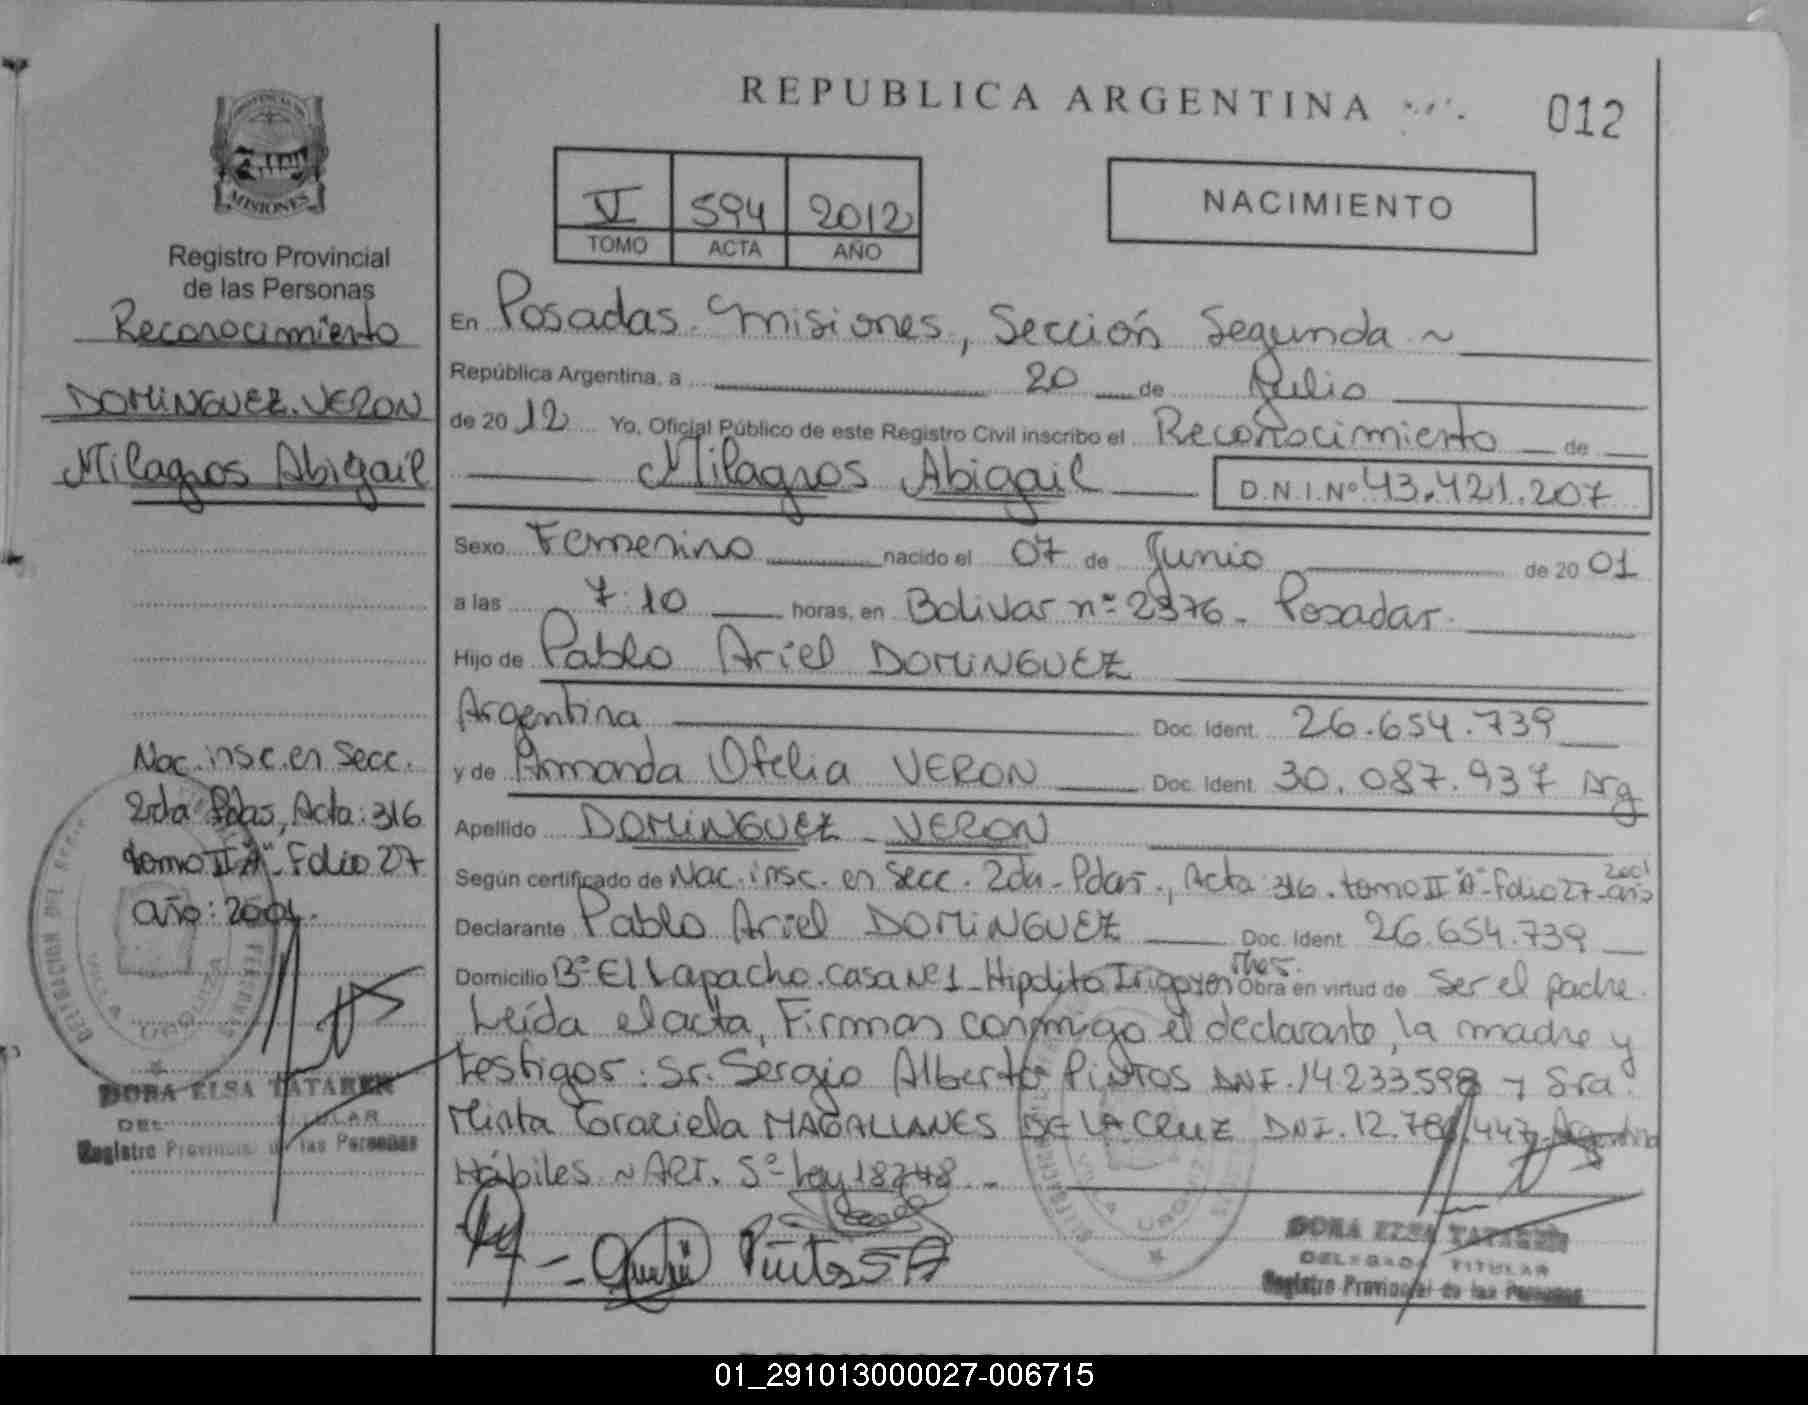 REPUBLICA ARGENTINA
012
PROVINCIA DE
MISIONES
Registro Provincial
de las Personas
Reconocimiento
DOMINGUEZ.VERON
Milagros Abigail
Nac. insc. en Secc.
2da Pdas, Acta: 316
tomo II "A"- Folio 27
año: 2001.
DORA ELSA TATAREN
DEL TITULAR
Registro Provincial de las Personas
V 594 2012
TOMO ACTA AÑO
NACIMIENTO
En Posadas. Misiones, Sección Segunda ~
República Argentina, a 20 de Julio
de 2012 Yo, Oficial Público de este Registro Civil inscribo el Reconocimiento de
Milagros Abigail D.N.I.Nº 43.421.207
Sexo Femenino nacido el 07 de Junio de 2001
a las 7:10 horas, en Bolivar nº 2376 - Posadas.
Hijo de Pablo Ariel DOMINGUEZ
Argentina Doc. Ident. 26.654.739
y de Armanda Ofelia VERON Doc. Ident. 30.087.937 Arg
Apellido DOMINGUEZ - VERON
Según certificado de Nac. insc. en Secc. 2da - Pdas., Acta 316. tomo II "A"- Folio 27- año 2001
Declarante Pablo Ariel DOMINGUEZ Doc. Ident. 26.654.739
Domicilio Bº El Lapacho. casa Nº1 - Hipólito Irigoyen Mnes. Obra en virtud de Ser el padre.
Leída el acta, Firman conmigo el declarante, la madre y
testigos: Sr. Sergio Alberto PINTOS DNI. 14.233.598 y Sra.
Mirta Graciela MAGALLANES DE LA CRUZ DNI. 12.781.447 Argentina
Hábiles ~ ART. 5º Ley 18248 -
Pintos S A
DORA ELSA TATAREN
DELEGADA TITULAR
Registro Provincial de las Personas
01_291013000027-006715